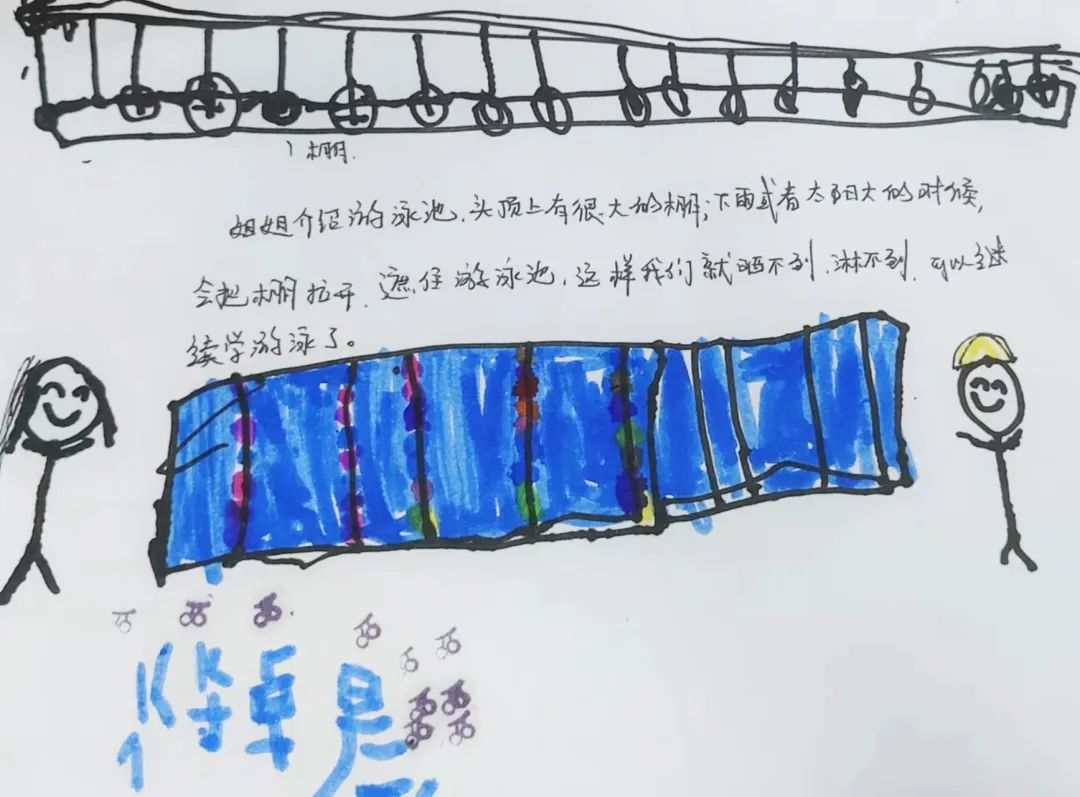 棚
姐姐介绍游泳池,头顶上有很大的棚,下雨或者太阳大的时候,
会把棚拉开,遮住游泳池,这样我们就晒不到,淋不到,可以继
续学游泳了。
卓是